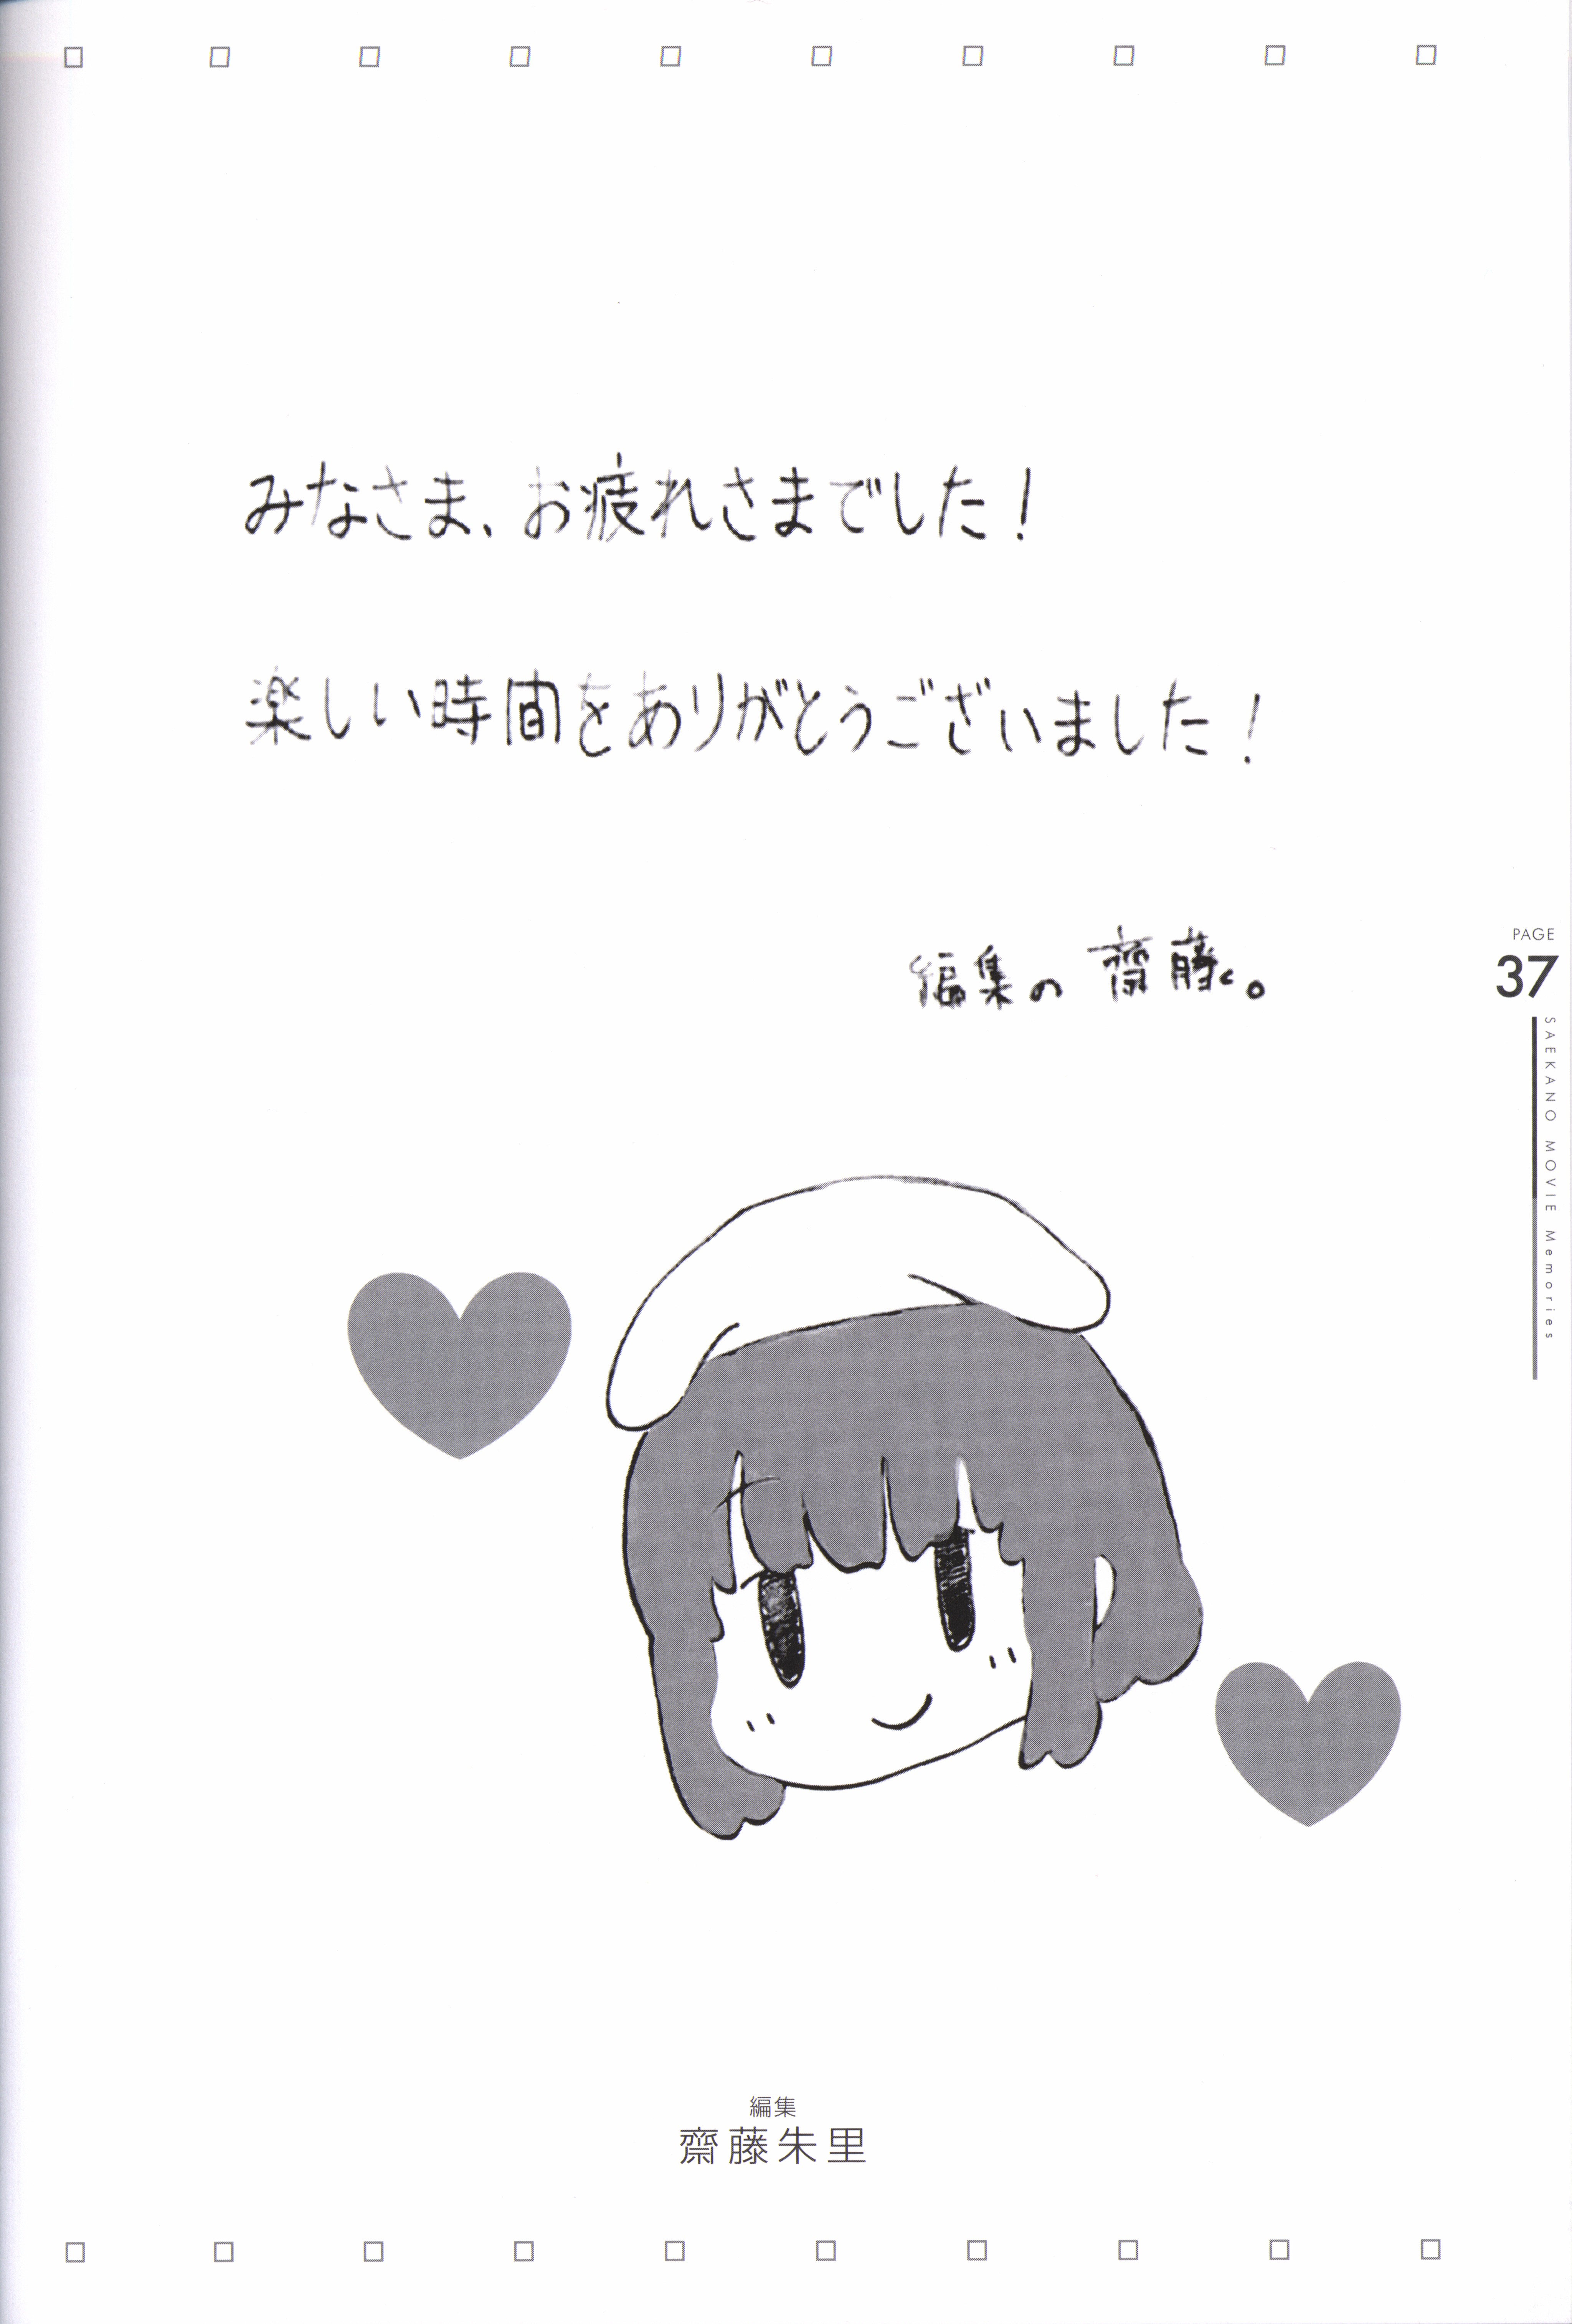 みなさま、お疲れさまでした!
楽しい時間をありがとうございました!
編集の 齋藤。
PAGE
37
SAEKANO MOVIE Memories
編集
齋藤朱里